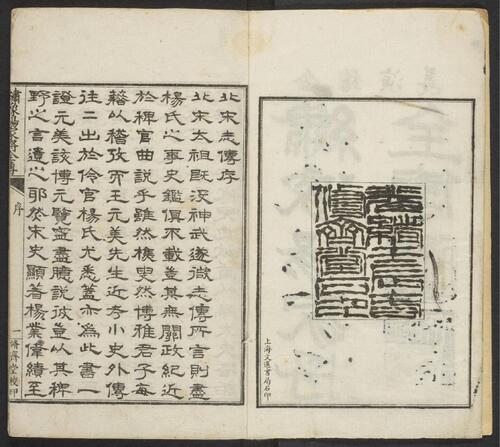 上海文書局石印
北宋志傳序
北宋太祖既没神武遂微志傳所言則盡
楊氏之事史鑑俱不載蓋其無關政紀近
於稗官曲說乎雖然樵叟然博雅君子每
藉以稽攷而王元美先生近考小史外傳
往二出於伶官楊氏尤悉蓋亦為此書一
證元美該博元覽寧盡臆說彼豈以其稗
野之言遺之耶然宋史顯著楊業偉績至
繡像楊家將全傳
序
一
齊堂校印